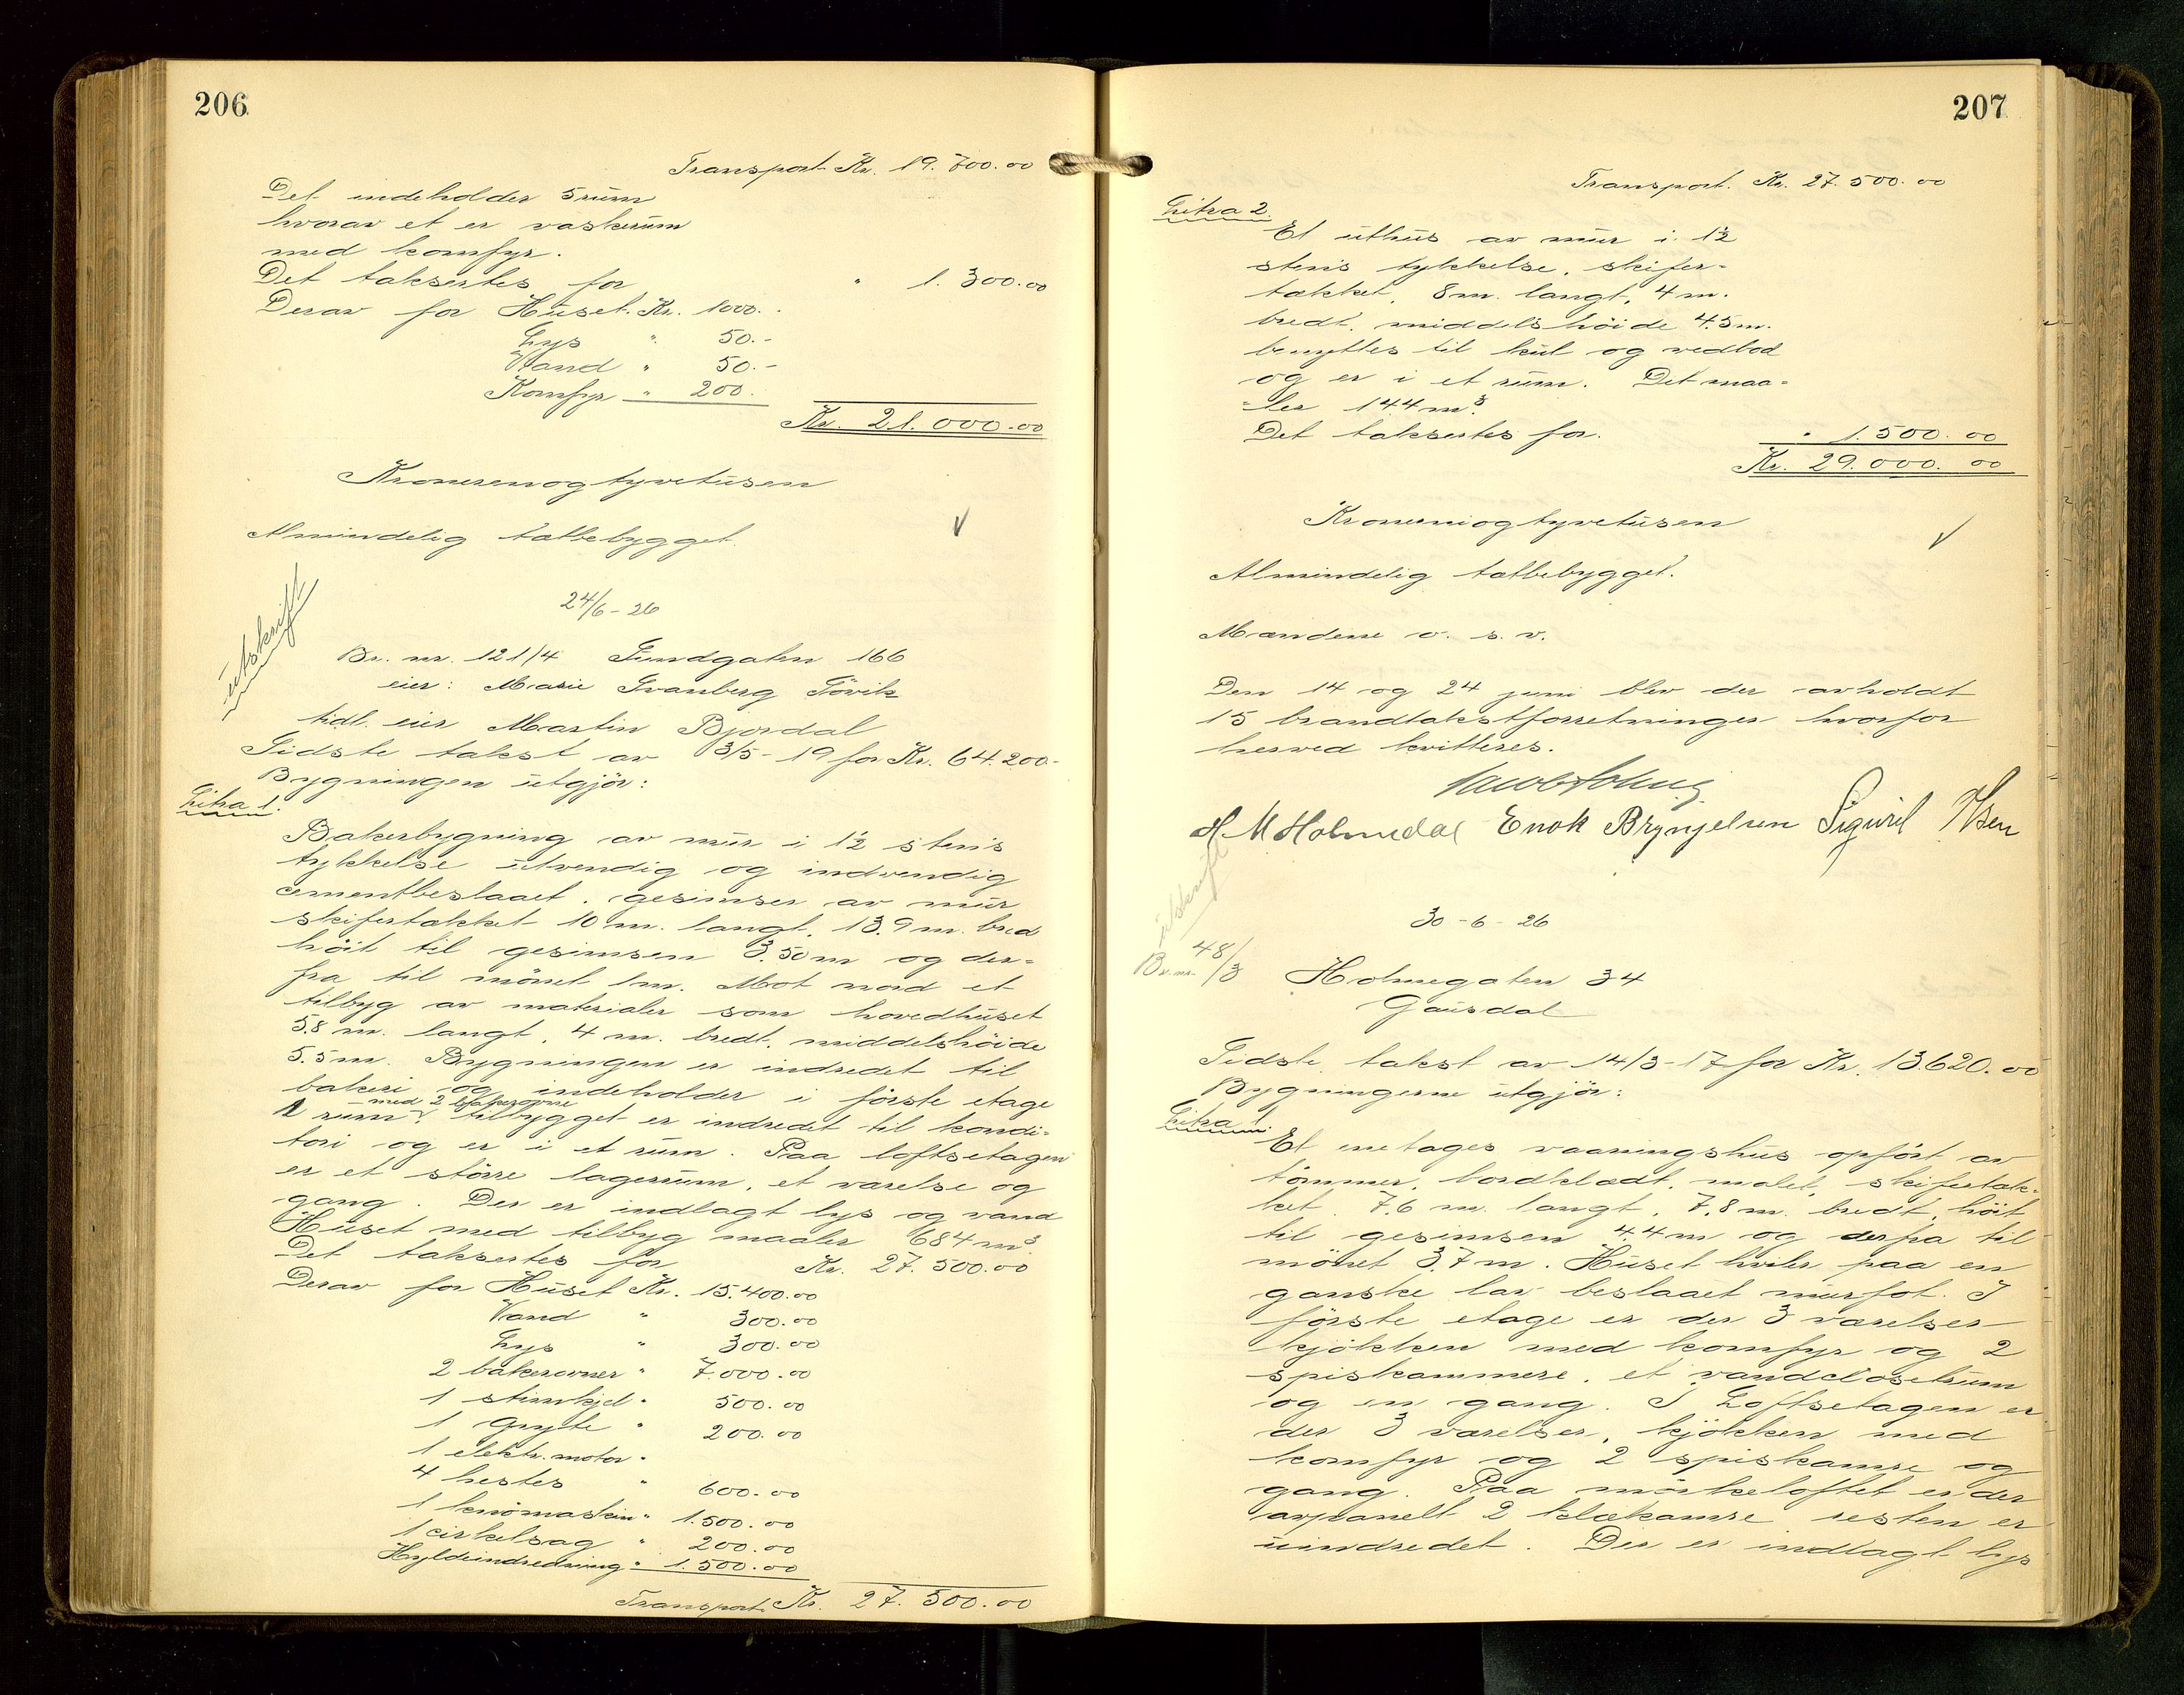 206
Transport. Kr. 19.700.00
Det indeholder 5 rum
hvorav et er vaskerum
med komfyr.
Det taksertes for " 1.300.00
Derav for Huset. Kr. 1000. -
Lys " 50.-
Vand " 50.-
Komfyr " 200.
Kr. 21.000.00
Kronerenogtyvetusen
Almindelig tætbebygget.
24/6-26
utskrift
Br. nr. 121/4 Sundgaten 166
eier: Marie Svanberg Lövik
tidl. eier Martin Bjordal
Sidste takst av 13/5-19 for Kr. 64.200.-
Bygningen utgjör:
Litra 1.
Bakerbygning av mur i 1½ stens
tykkelse utvendig og indvendig
cementbeslaaet. gesimser av mur
skifertækket 10 m. langt. 13.9 m. bred
höit til gesimsen 3.50 m og der=
fra til mönet 1 m. Mot nord et
tilbyg av materialer som hovedhuset
5.8 m. langt, 4 m. bredt. middelshöide
5.5 m. Bygningen er indredet til
bakeri og indeholder i förste etage
med 2 bakerovne
1 rum tilbygget er indredet til kondi=
tori og er i et rum. Paa loftsetagen
er et större lagerrum, et værelse og
gang. Der er indlagt lys og vand
Huset med tilbyg maaler 684 m³
Det taksertes for Kr. 27.500.00
Derav for Huset Kr. 15.400.00
Vand " 300.00
Lys " 300.00
2 bakerovner " 7.000.00
1 stimkjel " 500.00
1 Gryte " 200.00
1 elektr. motor "
4 hestes " 600.00
1 knömaskin " 1.500.00
1 cirkelsag " 200.00
Hyldeindredning " 1.500.00
Transport. Kr. 27.500.00
207
Transport. Kr. 27.500.00
Litra 2.
Et uthus av mur i 1½
stens tykkelse, skifer=
tækket, 8 m. langt, 4 m.
bredt. middelshöide 4.5 m.
benyttes til kul og vedbod
og er i et rum. Det maa=
=ler 144 m³.
Det taksertes for. " 1.500.00
Kr. 29.000.00
Kroneniogtyvetusen
Almindelig tætbebygget.
Mændene o. s. v.
Den 14 og 24 juni blev der avholdt
15 brandtakstforretninger hvorfor
herved kvitteres.
H M Holmedal Enok Brynjelsen Sigurd
utskrift
30-6-26
Br. nr. 48/3 Holmegaten 34
Gausdal
Sidste takst av 14/3-17 for Kr. 13.620.00
Bygningerne utgjör:
Litra 1.
Et enetages vaaningshus opfört av
tömmer, bordklædt, malet, skifertæk=
ket. 7.6 m. langt, 7.8 m. bredt, höit
til gesimsen 4.4 m og derfra til
mönet 3.7 m. Huset hviler paa en
ganske lav beslaaet murfot. I
förste etage er der 3 værelser
kjökken med komfyr og 2
spiskammere, et vandclosetrum
og en gang. I Loftsetagen er
der 3 værelser, kjökken med
komfyr og 2 spiskamre og
gang. Paa mörkeloftet er der
avpanelt 2 klækamre resten er
uindredet. Der er indlagt lys